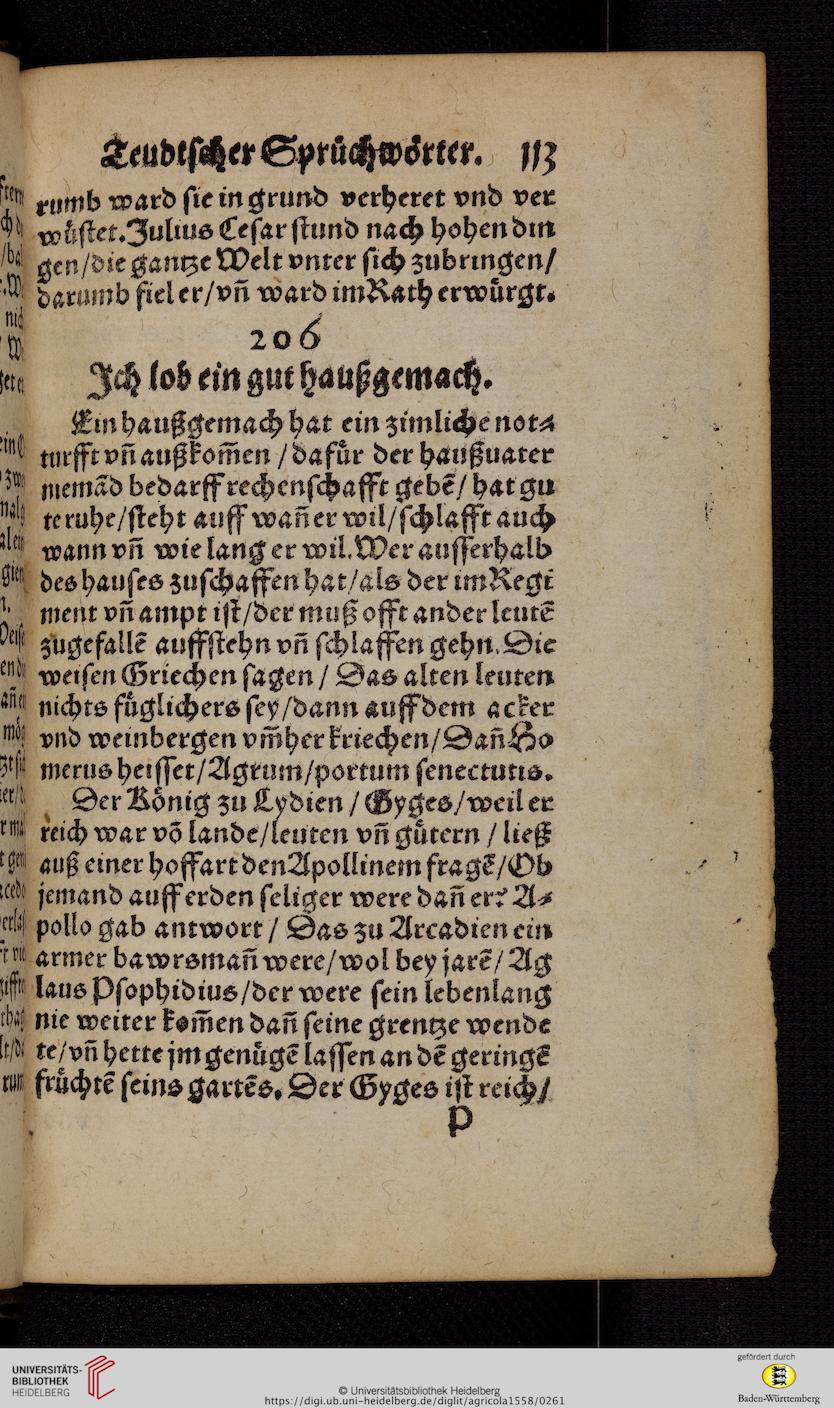 Teudtſcher Sprüchwörter. 113
rumb ward ſie in grund verheret vnd ver
wüſtet. Julius Ceſar ſtund nach hohen din
gen / die gantze Welt vnter ſich zubringen /
darumb fiel er / vñ ward im Rath erwürgt.
206
Ich lob ein gut haußgemach.
Ein haußgemach hat ein zimliche not⸗
turfft vñ außkom̃en / dafür der haußuater
niemãd bedarff rechenſchafft gebẽ / hat gu
te ruhe / ſteht auff wañ er wil / ſchlafft auch
wann vñ wie lang er wil. Wer auſſerhalb
des hauſes zuſchaffen hat / als der im Regi
ment vñ ampt iſt / der muß offt ander leutẽ
zugefallẽ auffſtehn vñ ſchlaffen gehn. Die
weiſen Griechen ſagen / Das alten leuten
nichts füglichers ſey / dann auff dem acker
vnd weinbergen vm̃her kriechen / Dañ Ho
merus heiſſet / Agrum / portum ſenectutis.
Der König zu Lydien / Gyges / weil er
reich war võ lande / leuten vñ gütern / ließ
auß einer hoffart den Apollinem fragẽ / Ob
jemand auff erden ſeliger were dañ er? A⸗
pollo gab antwort / Das zu Arcadien ein
armer bawrsmañ were / wol bey jarẽ / Ag
laus Pſophidius / der were ſein lebenlang
nie weiter kom̃en dañ ſeine grentze wende
te / vñ hette jm genügẽ laſſen an dẽ geringẽ
früchtẽ ſeins gartẽs. Der Gyges iſt reich /
P
UNIVERSITÄTS-
BIBLIOTHEK
HEIDELBERG
© Universitätsbibliothek Heidelberg
https://digi.ub.uni-heidelberg.de/diglit/agricola1558/0261
gefördert durch
Baden-Württemberg